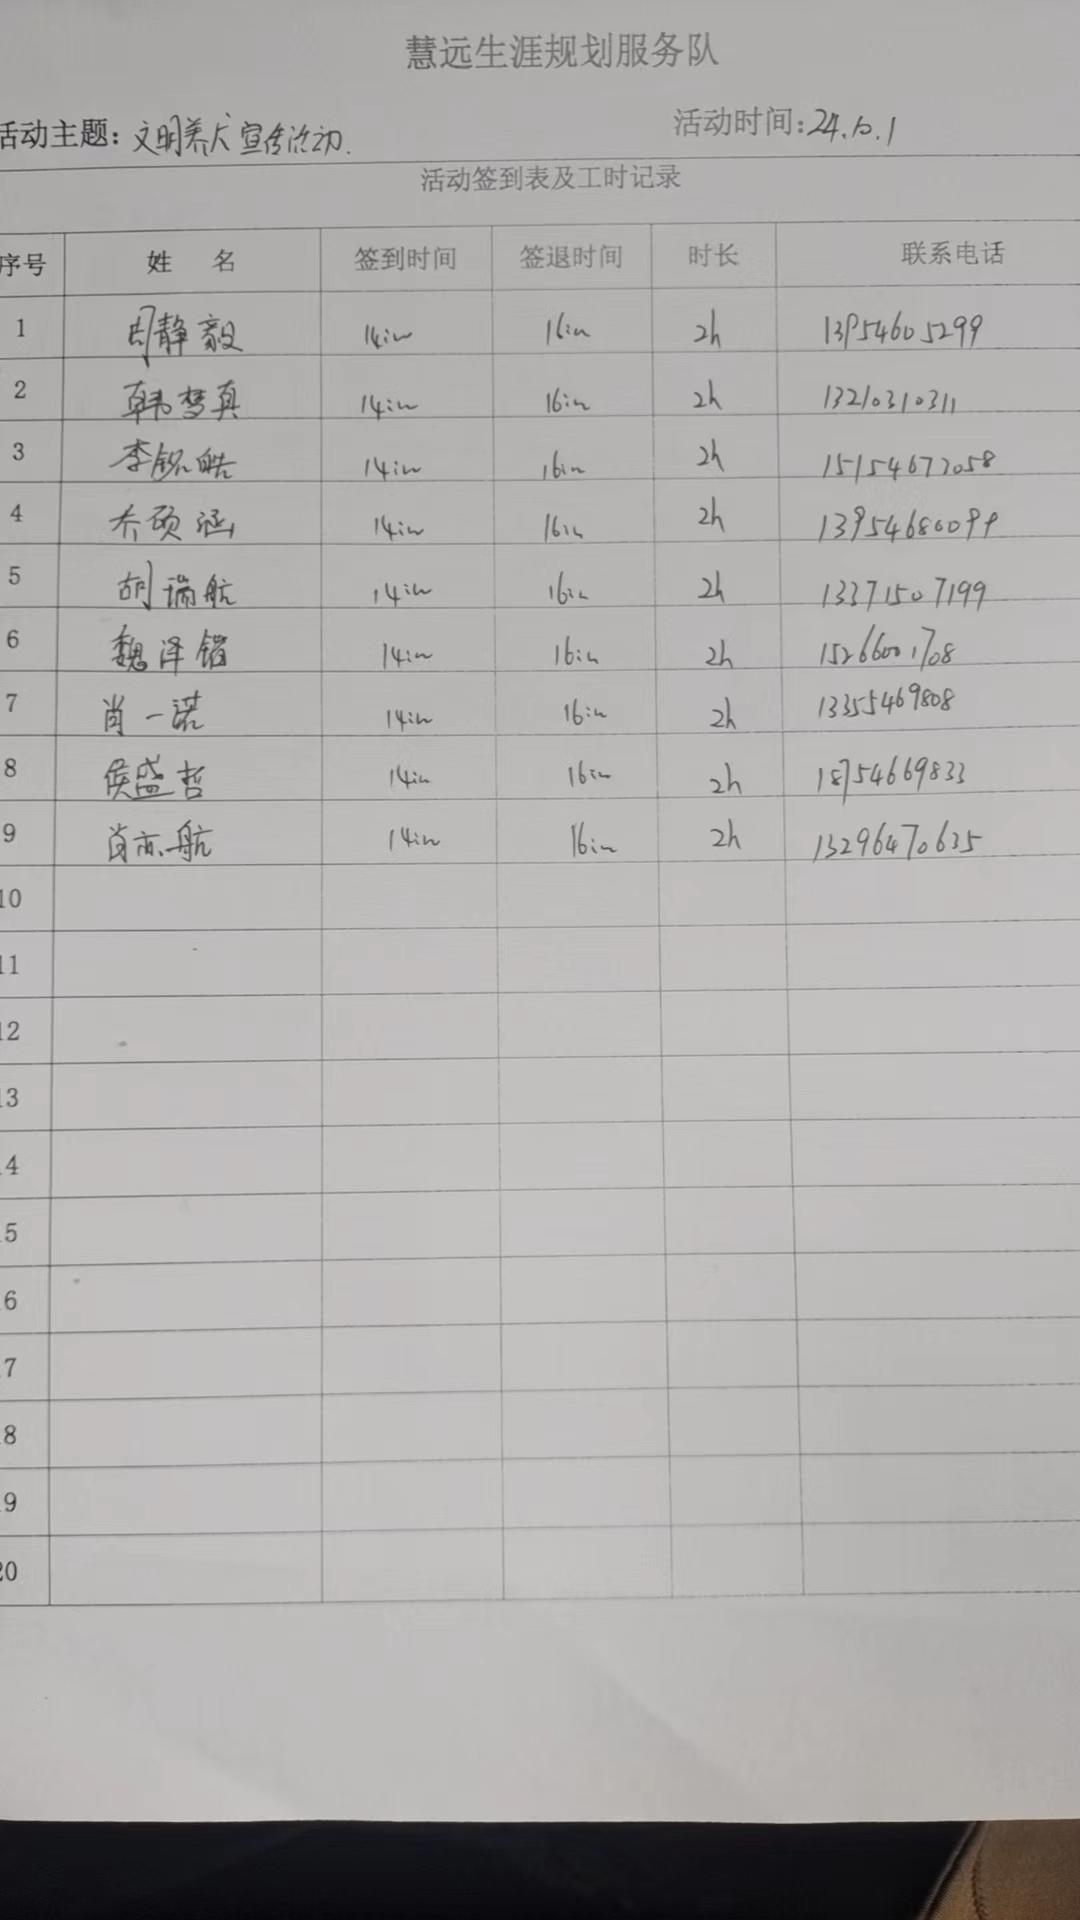 慧远生涯规划服务队
活动主题:文明养犬宣传活动. 活动时间:24.10.1
活动签到表及工时记录
序号 姓 名 签到时间 签退时间 时长 联系电话
1 周静毅 14:00 16:00 2h 13954605299
2 韩梦真 14:00 16:00 2h 13210310311
3 李铭皓 14:00 16:00 2h 15154677058
4 乔硕涵 14:00 16:00 2h 13954680099
5 胡瑞航 14:00 16:00 2h 13371507199
6 魏泽锴 14:00 16:00 2h 15266001708
7 肖一诺 14:00 16:00 2h 13355469808
8 侯盛哲 14:00 16:00 2h 18754669833
9 肖亦航 14:00 16:00 2h 13296470635
10
11
12
13
14
15
16
17
18
19
20